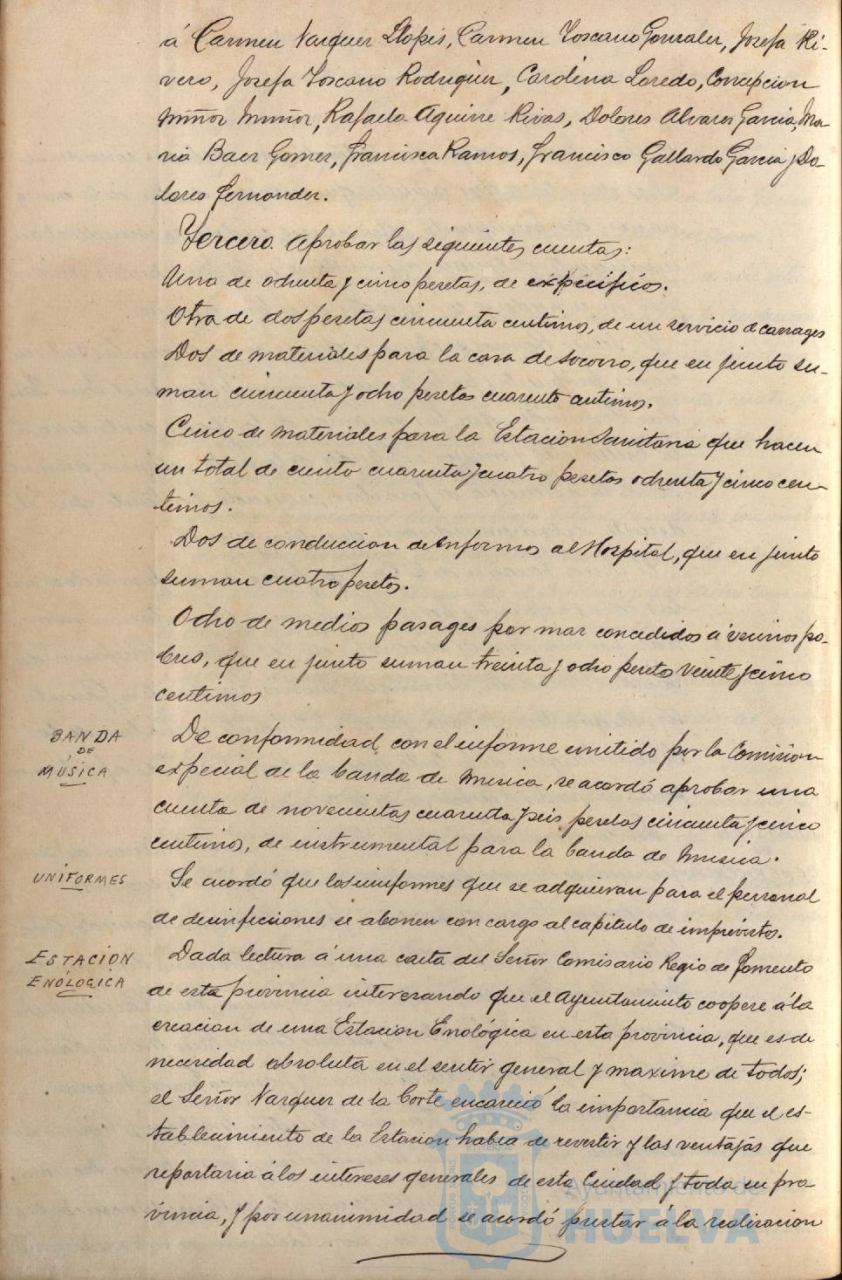 á Carmen Vazquez Llopis, Carmen Toscano Gonzalez, Josefa Ri-
vero, Josefa Toscano Rodriguez, Carolina Loredo, Concepcion
Muñoz Muñoz, Rafaela Aguirre Rivas, Dolores Alvarez Garcia, Ma-
ria Baez Gomez, Francisca Ramos, Francisco Gallardo Garcia y Do-
lores Fernandez.
Tercero. Aprobar las siguientes cuentas:
Una de ochenta y cinco pesetas, de expecificos.
Otra de dos pesetas cincuenta centimos, de un servicio de carrages
Dos de materiales para la casa de socorro, que en junto su-
man cincuenta y ocho pesetas cuarenta centimos.
Cinco de materiales para la Estacion Sanitaria que hacen
un total de ciento cuarenta y cuatro pesetas ochenta y cinco cen-
timos.
Dos de conduccion de enfermos al Hospital, que en junto
suman cuatro pesetas.
Ocho de medios pasages por mar concedidos á vecinos po-
bres, que en junto suman treinta y ocho pesetas veinte y cinco
centimos
BANDA
DE
MÚSICA
De conformidad con el informe emitido por la Comision
especial de la banda de musica, se acordó aprobar una
cuenta de novecientas cuarenta y seis pesetas cincuenta y cinco
centimos, de instrumental para la banda de musica.
UNIFORMES
Se acordó que los uniformes que se adquieran para el personal
de desinfecciones se abonen con cargo al capitulo de imprevistos.
ESTACION
ENÓLOGICA
Dada lectura á una carta del Señor Comisario Regio de Fomento
de esta provincia interesando que el Ayuntamiento coopere á la
creacion de una Estacion Enológica en esta provincia, que es de
necesidad absoluta en el sentir general y maxime de todos;
el Señor Vazquez de la Corte encareció la importancia que el es-
tablecimiento de la Estacion habia de revestir y las ventajas que
reportaria á los intereses generales de esta Ciudad y toda su pro
vincia, y por unanimidad se acordó prestar á la realizacion
Ayuntamiento de
HUELVA